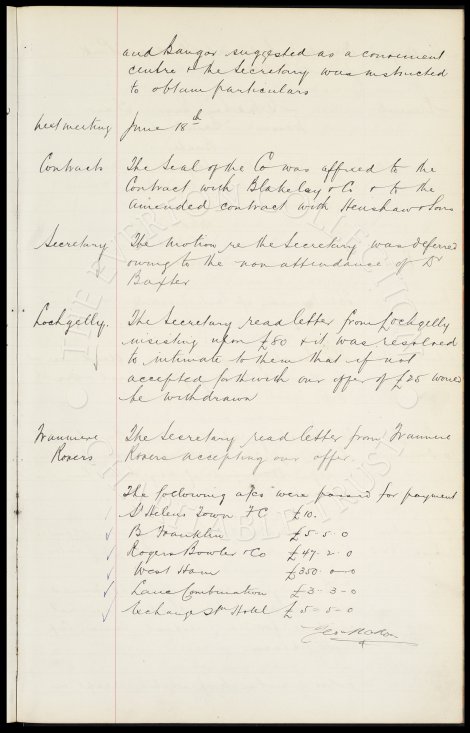 and Bangor suggested as a convenient
centre & the Secretary was instructed
to obtain particulars
next meeting June 18th
Contracts The Seal of the Co was affixed to the
Contract with Blakeley & Co & to the
amended contract with Henshaw & Sons
Secretary The Motion re the Secretary was deferred
owing to the non attendance of Dr
Baxter
Lochgelly. The Secretary read letter from Lochgelly
insisting upon £80 & it was resolved
to intimate to them that if not
accepted forthwith our offer of £25 would
be withdrawn
Tranmere Rovers The Secretary read letter from Tranmere
Rovers accepting our offer.
The following a/cs were passed for payment
St Helens Town FC £10.
B Franklin £5-5-0
Rogers Bowler & Co £47-2-0
West Ham £350-0-0
Lanc Combination £3-3-0
Exchange Stn Hotel £5-5-0
THE EVERTON COLLECTION
CHARITABLE TRUST